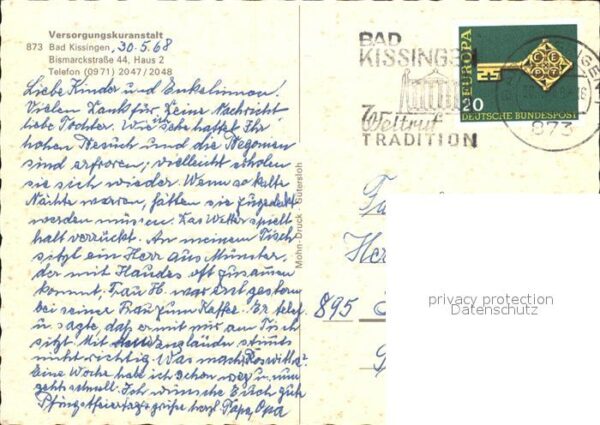 Versorgungskuranstalt
873 Bad Kissingen, 30.5.68
Bismarckstraße 44, Haus 2
Telefon (0971) 2047/2048
Liebe Kinder und Enkelinnen.
Vielen Dank für Deine Nachricht
liebe Tochter. Wie ich haftet Ihr
hohen Besuch und die Begonien
sind erfroren; vielleicht erholen
sie sich wieder. Wenn so kalte
Nächte waren, hätten sie zugedeckt
werden müssen. Das Wetter spielt
halt verrückt. An meinem Tisch
sitzt ein Herr aus Münster,
der mit Haudes oft zusammen
kommt, Frau H. war erst gestern
bei seiner Frau zum Kaffee. Er telef.
u. sagte, daß er mit mir am Tisch
sitzt. Mit
nicht richtig. Was macht Roswitha?
Eine Woche habe ich schon weg u. nun
geht schnell. Ich wünsche Euch gute
Pfingstfeiertage grüße herzl. Papa, Opa
Mohn-Druck · Gütersloh
BAD
KISSINGEN
Weltruf
TRADITION
EUROPA
CEPT
20
DEUTSCHE BUNDESPOST
873
895
privacy protection
Datenschutz